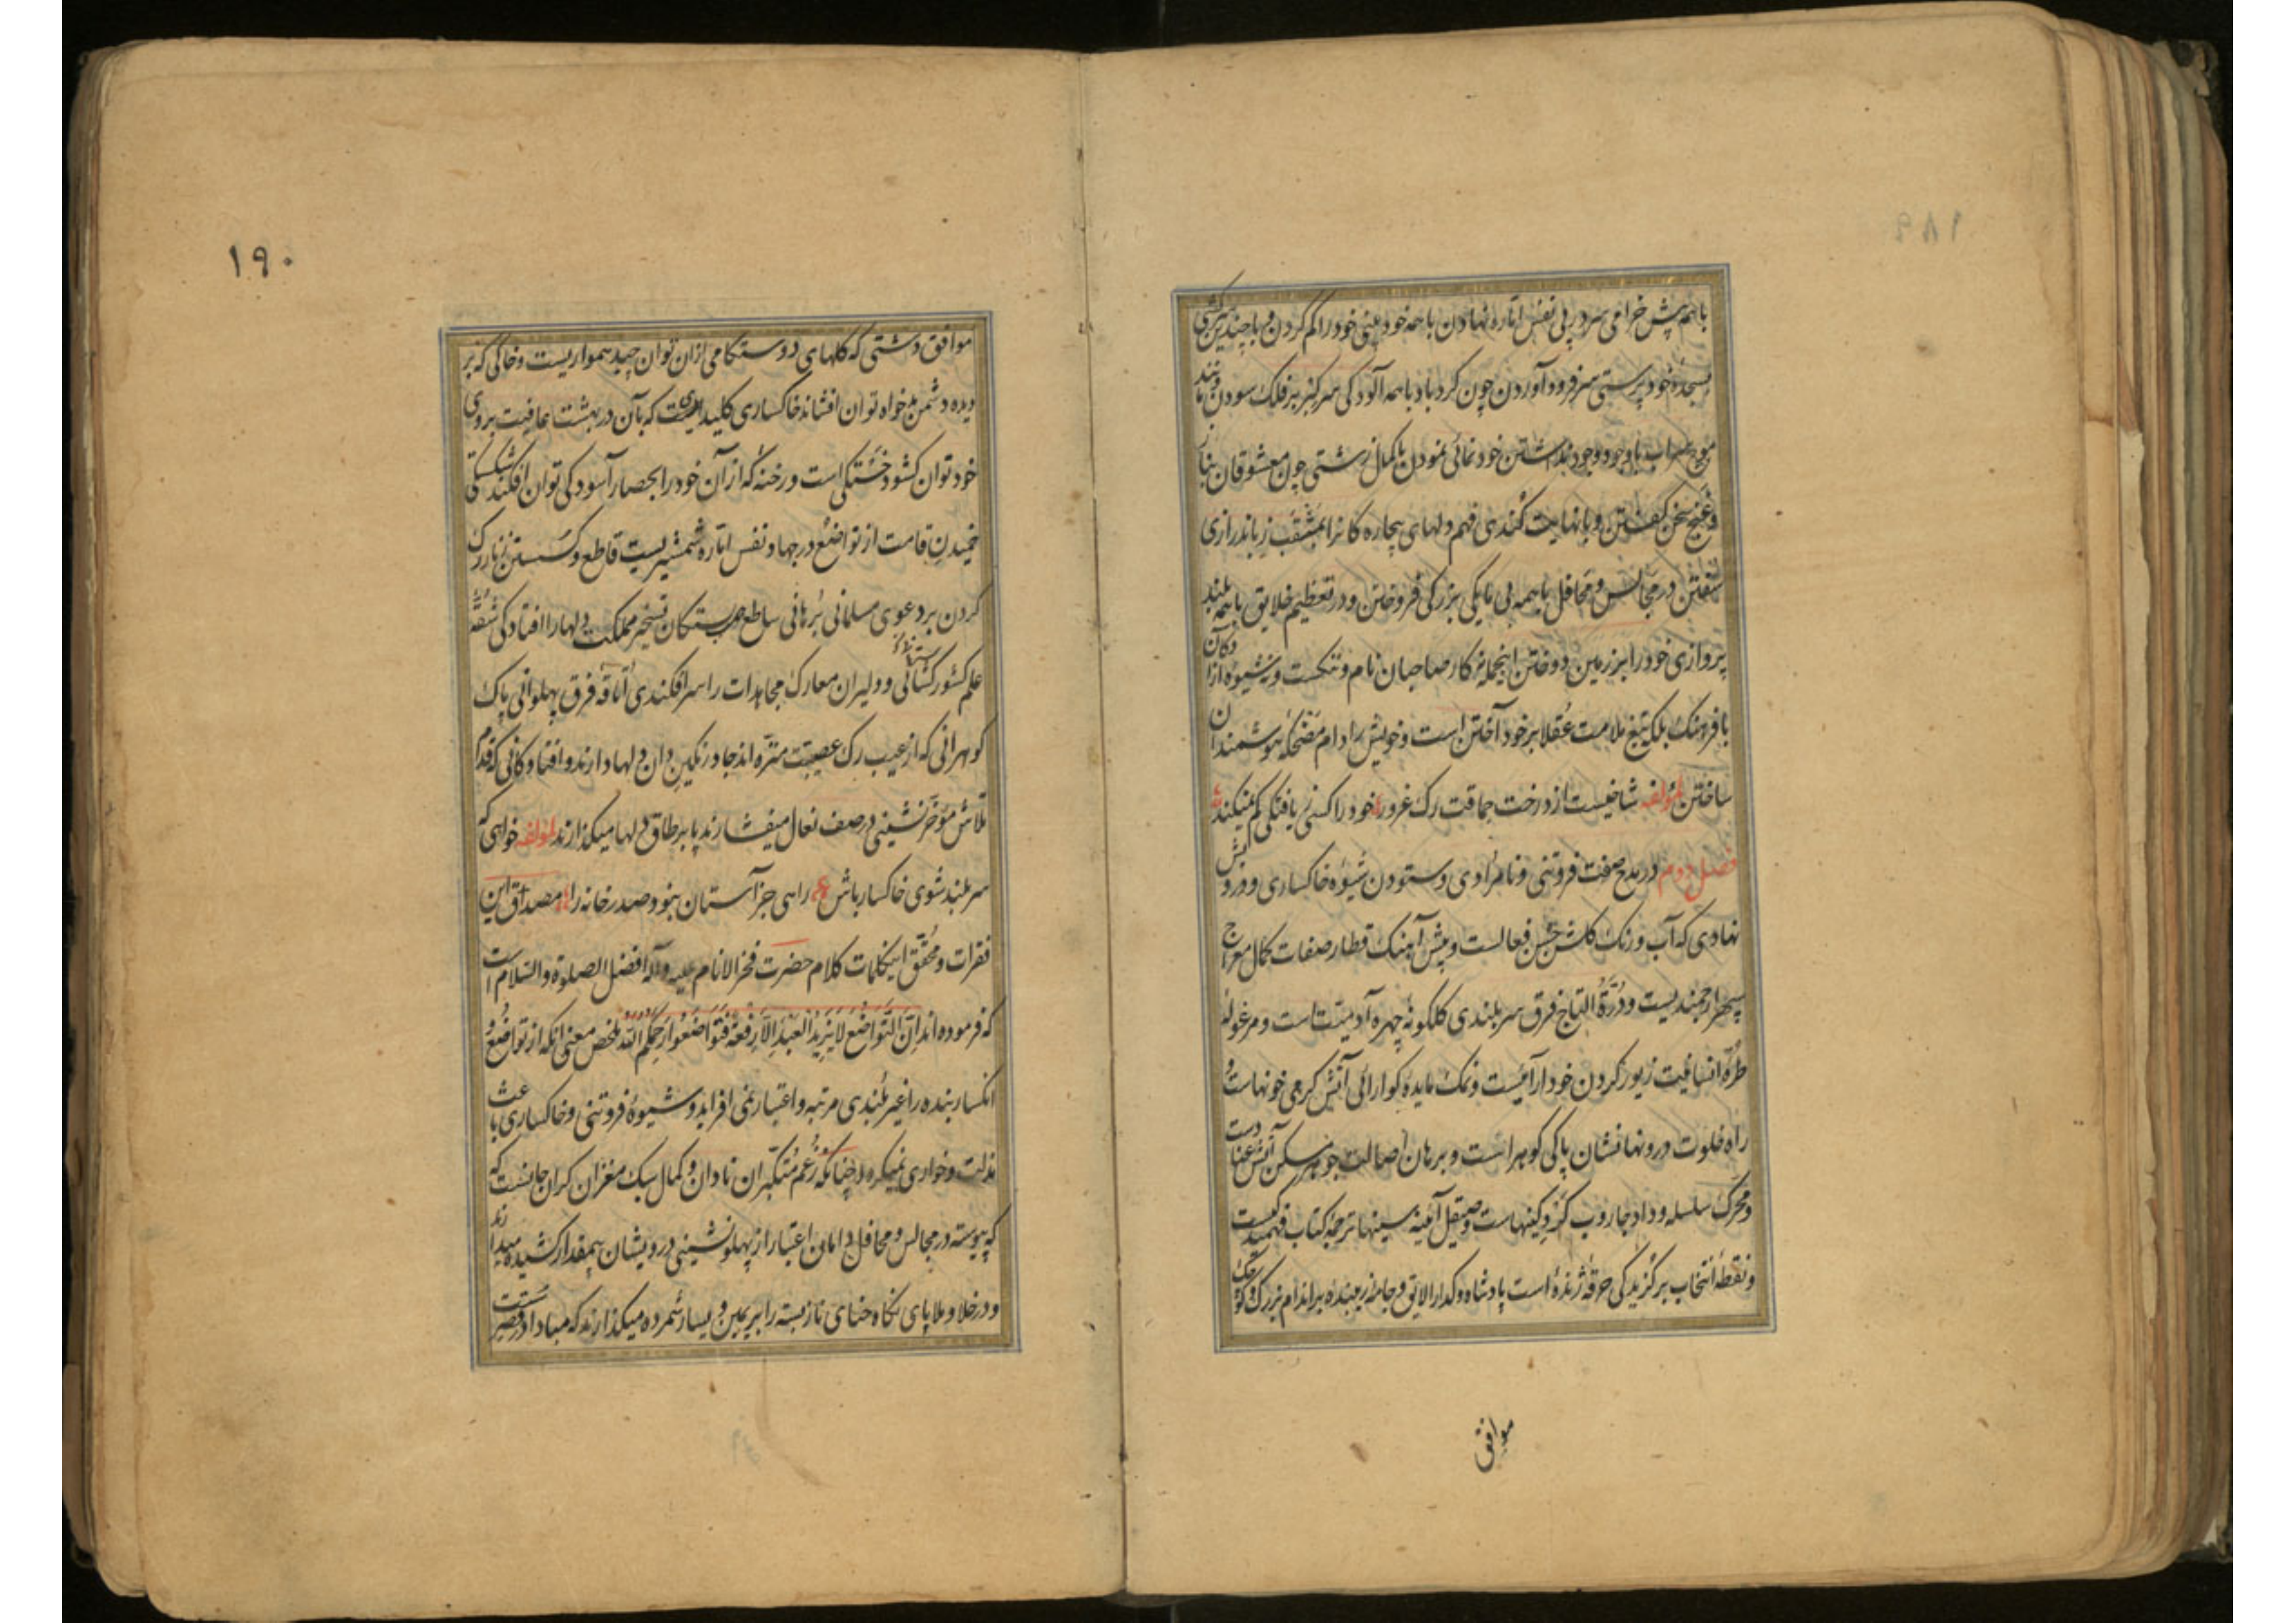 باهمه پیش خرامی سر در پی نفس اماره نهادن باهمه خودبینی خود را گم کردن و با چندین سرکشی
بسجدهٔ خودپرستی سر فرود آوردن چون کردباد باهمه آلودکی سر کبر بر فلک سودن و مانند
موج سراب باوجود وجود نداشتن خودنمائی نمودن با کمال زشتی چون معشوقان بناز
و غنج سخن کفتن و با نهایت کندی فهم دلهای بیچاره کانرا بمثقب زباندرازی
سفتن در مجالس و محافل باهمه بی مایکی بزرکی فروختن و در تعظیم خلایق باهمه بلند
پروازی خود را بر زمین دوختن اینجمله نه کار صاحبان نام و ننکست و نه شیوه ازادکان
بافرهنک بلکه تیغ ملامت عقلا بر خود آختن است و خویش را دام مضحکه هوشمندان
ساختن لمؤلفه شاخیست از درخت حماقت رک غرور خود را کسی بیافتکی کم نمیکند
فصل دوم در مدح صفت فروتنی و نامرادی و ستودن شیوه خاکساری و درویش
نهادی که آب و رنک کلشن حسن فعالست و پیش آهنک قطار صفات کمال معراج
سپهر ارجمندیست و درة التاج فرق سربلندی کلکونه چهره آدمیتست و مرغوله
طره انسانیت زیور کردن خودآرائیست و نمک مایده کوارائی آتش کرمی خونهاست و
راه خلوت درونها نشان پاکی کوهر است و برهان اصالت جوهر مسکن آتش عناد است
و محرک سلسله وداد جاروب کرد کینهاست و صیقل آینه سینها ترجمه کتاب فهمیدکیست
و نقطه انتخاب برکزیدکی خرقه ژنده است پادشاه و کدا را لایق و جامه زیبنده بر اندام بزرک و کوچک
موافق
۱۹۰
موافق دشتی که کلهای دوستکامی ازان توان چید همواریست و خاکی که بر
دیده دشمن بدخواه توان افشاند خاکساری کلیدی که بآن در بهشت عافیت بروی
خود توان کشود خستکی است و رخنه که از آن خود را بحصار آسودکی توان افکند شکستکی
خمیدن قامت از تواضع در جهاد نفس اماره شمشیریست قاطع و کسستن زنار رک
کردن بر دعوی مسلمانی برهانی ساطع تسخیر مملکت دلها را افتادکی شقه
علم کشورکشائی و دلیران معارک مجاهدات را سرافکندی اتاقه فرق پهلوانی پاک
کوهرانی که از عیب رک عصبیت منزه اند جا در نکین دان دلها دارند و افتادکانی که قدم
تلاش مؤخر نشینی در صف نعال میفشارند پا بر طاق دلها میکذارند لمؤلفه خواهی که
سربلند شوی خاکسار باش راهی جز آستان نبود صدر خانه را مصداق این
فقرات و محقق اینکلمات کلام حضرت فخر الانام علیه و آله افضل الصلوة و السلام است
که فرموده اند ان التواضع لا یزید العبد الا رفعة فتواضعوا یرحمکم الله ملخص معنی آنکه از تواضع و
انکسار بنده را غیر بلندی مرتبه و اعتبار نمی افزاید و شیوه فروتنی و خاکساری باعث
مذلت و خواری نمیکردد چنانکه زعم متکبران نادان و کمال سبک مغزان کران جانست که
که پیوسته در مجالس و محافل دامان اعتبار از پهلونشینی درویشان بیمقدار کشیده میدارند
و در خلا و ملا پای نکاه حنای ناز بسته را بر یمین و یسار شمرده میکذارند که مبادا در